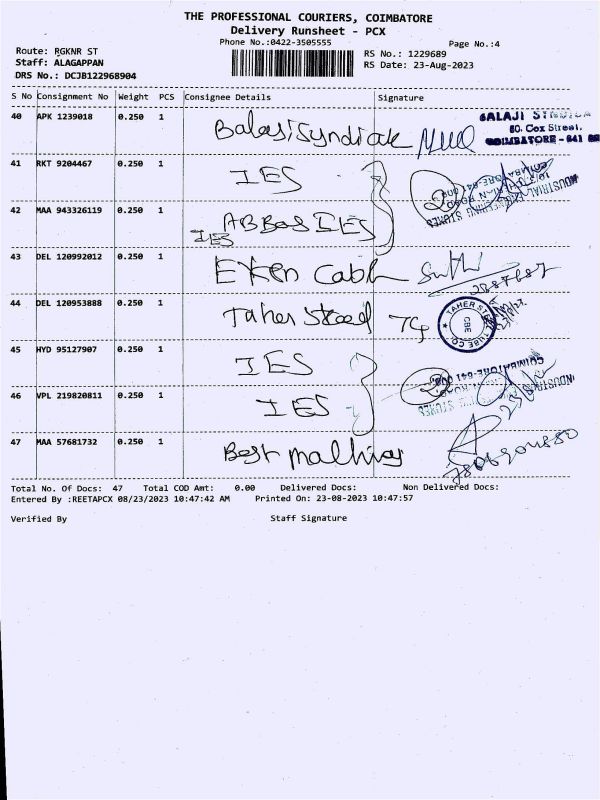 THE PROFESSIONAL COURIERS, COIMBATORE
Delivery Runsheet - PCX
Phone No.:0422-3505555
Page No.:4
Route: RGKNR ST
RS No.: 1229689
Staff: ALAGAPPAN
RS Date: 23-Aug-2023
DRS No.: DCJB122968904
S No Consignment No Weight PCS Consignee Details Signature
40 APK 1239018 0.250 1
BALAJI SYNDICA
80, Cox Street,
COIMBATORE - 641
41 RKT 9204467 0.250 1 IES
42 MAA 943326119 0.250 1 ABBas IES
IES
43 DEL 120992012 0.250 1
44 DEL 120953888 0.250 1 Taher Steel
TAHER STEEL TUBE CO.
CBE
45 HYD 95127907 0.250 1 IES
46 VPL 219820811 0.250 1 IES
47 MAA 57681732 0.250 1 Best
Total No. Of Docs: 47 Total COD Amt: 0.00 Delivered Docs: Non Delivered Docs:
Entered By :REETAPCX 08/23/2023 10:47:42 AM Printed On: 23-08-2023 10:47:57
Verified By Staff Signature